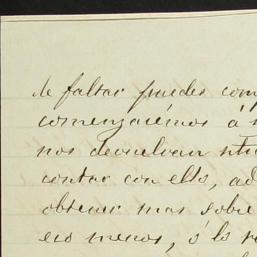 de faltar puedes com
comenzaremos á
nos devuelvan
contar con ello, ad
obtener mas sobre
eso menos, ó lo